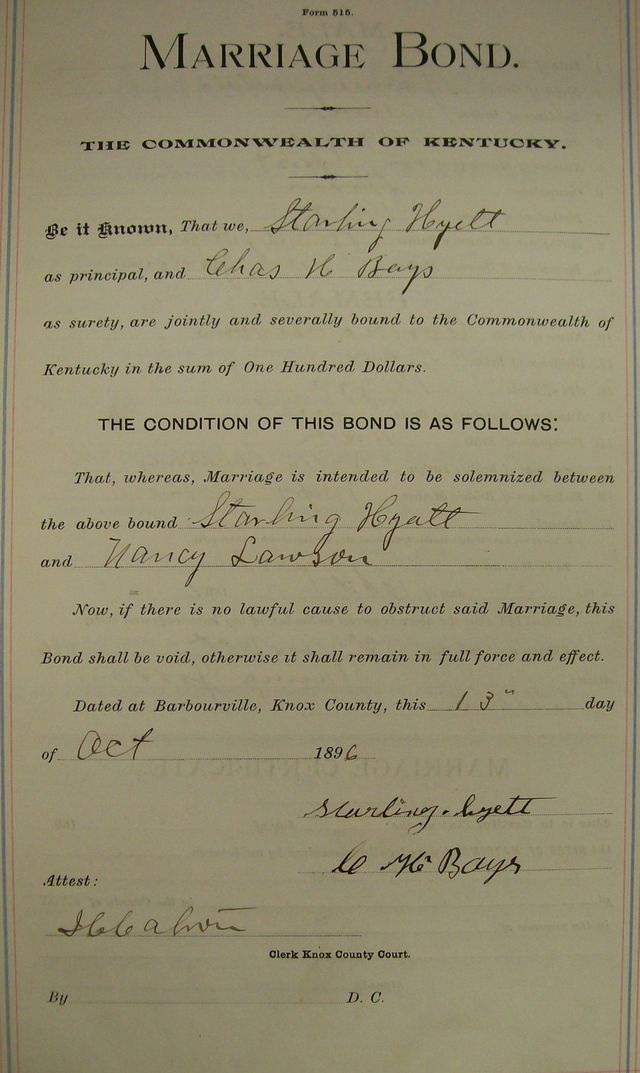 Form 515.
MARRIAGE BOND.
THE COMMONWEALTH OF KENTUCKY.
Be it Known, That we, Starling Hyett
as principal, and Chas H Bays
as surety, are jointly and severally bound to the Commonwealth of
Kentucky in the sum of One Hundred Dollars.
THE CONDITION OF THIS BOND IS AS FOLLOWS:
That, whereas, Marriage is intended to be solemnized between
the above bound Starling Hyatt
and Nancy Lawson
Now, if there is no lawful cause to obstruct said Marriage, this
Bond shall be void, otherwise it shall remain in full force and effect.
Dated at Barbourville, Knox County, this 13" day
of Oct 1896
Starling. hyett
C H Bays
Attest:
Clerk Knox County Court.
By D. C.